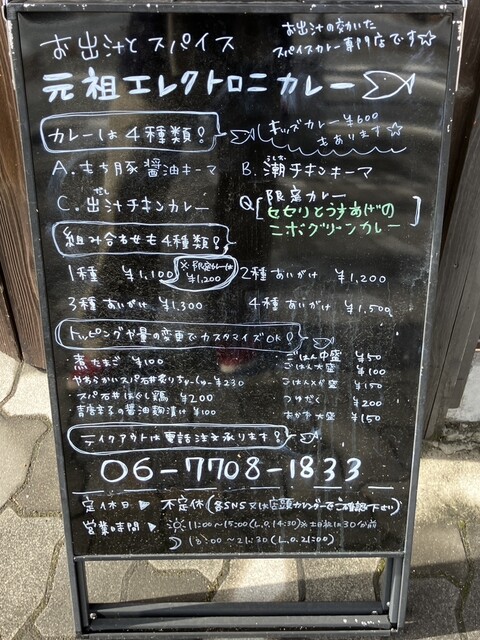 お出汁とスパイス
お出汁の効いた
スパイスカレー専門店です☆
元祖エレクトロニカレー
カレーは4種類!
キッズカレー ¥600
もあります☆
A. もち豚醤油キーマ
B. 潮チキンキーマ
C. 出汁チキンカレー
だし
Q[限定カレー
セセリとうすあげの
ニボグリーンカレー]
組み合わせも4種類!
1種 ¥1,100
※限定カレーは
¥1,200
2種あいがけ ¥1,200
3種あいがけ ¥1,300
4種あいがけ ¥1,500
トッピングや量の変更でカスタマイズOK!
煮たまご ¥100
やわらかいスパ石井炙りちゃーしゅー ¥230
スパ石井ほぐし鶏 ¥200
青唐辛子の醤油麹漬け ¥100
ごはん中盛 ¥50
ごはん大盛 ¥100
ごはんメガ盛 ¥150
つゆだく ¥200
おかず大盛 ¥150
テイクアウトは電話注文承ります!
06-7708-1833
定休日▶ 不定休(各SNS又は店頭カレンダーでご確認下さい)
営業時間▶ 11:00~15:00(L.O.14:30)※土日祝は30分前
18:00~21:30(L.O.21:00)